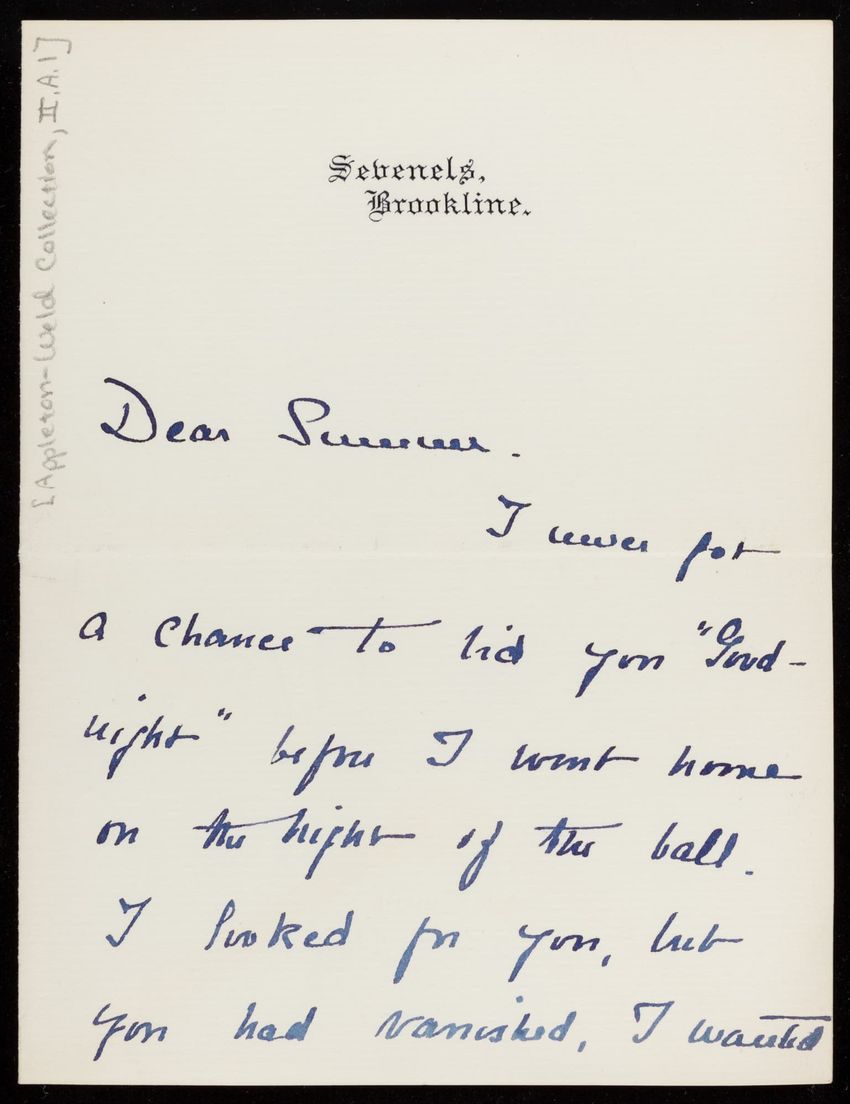 [Appleton-Weld Collection, II.A.1]
Sevenels,
Brookline.
Dear Sumner.
I never got
a chance to bid you "Good-
night" before I went home
on the night of the ball.
I looked for you, but
you had vanished, I wanted